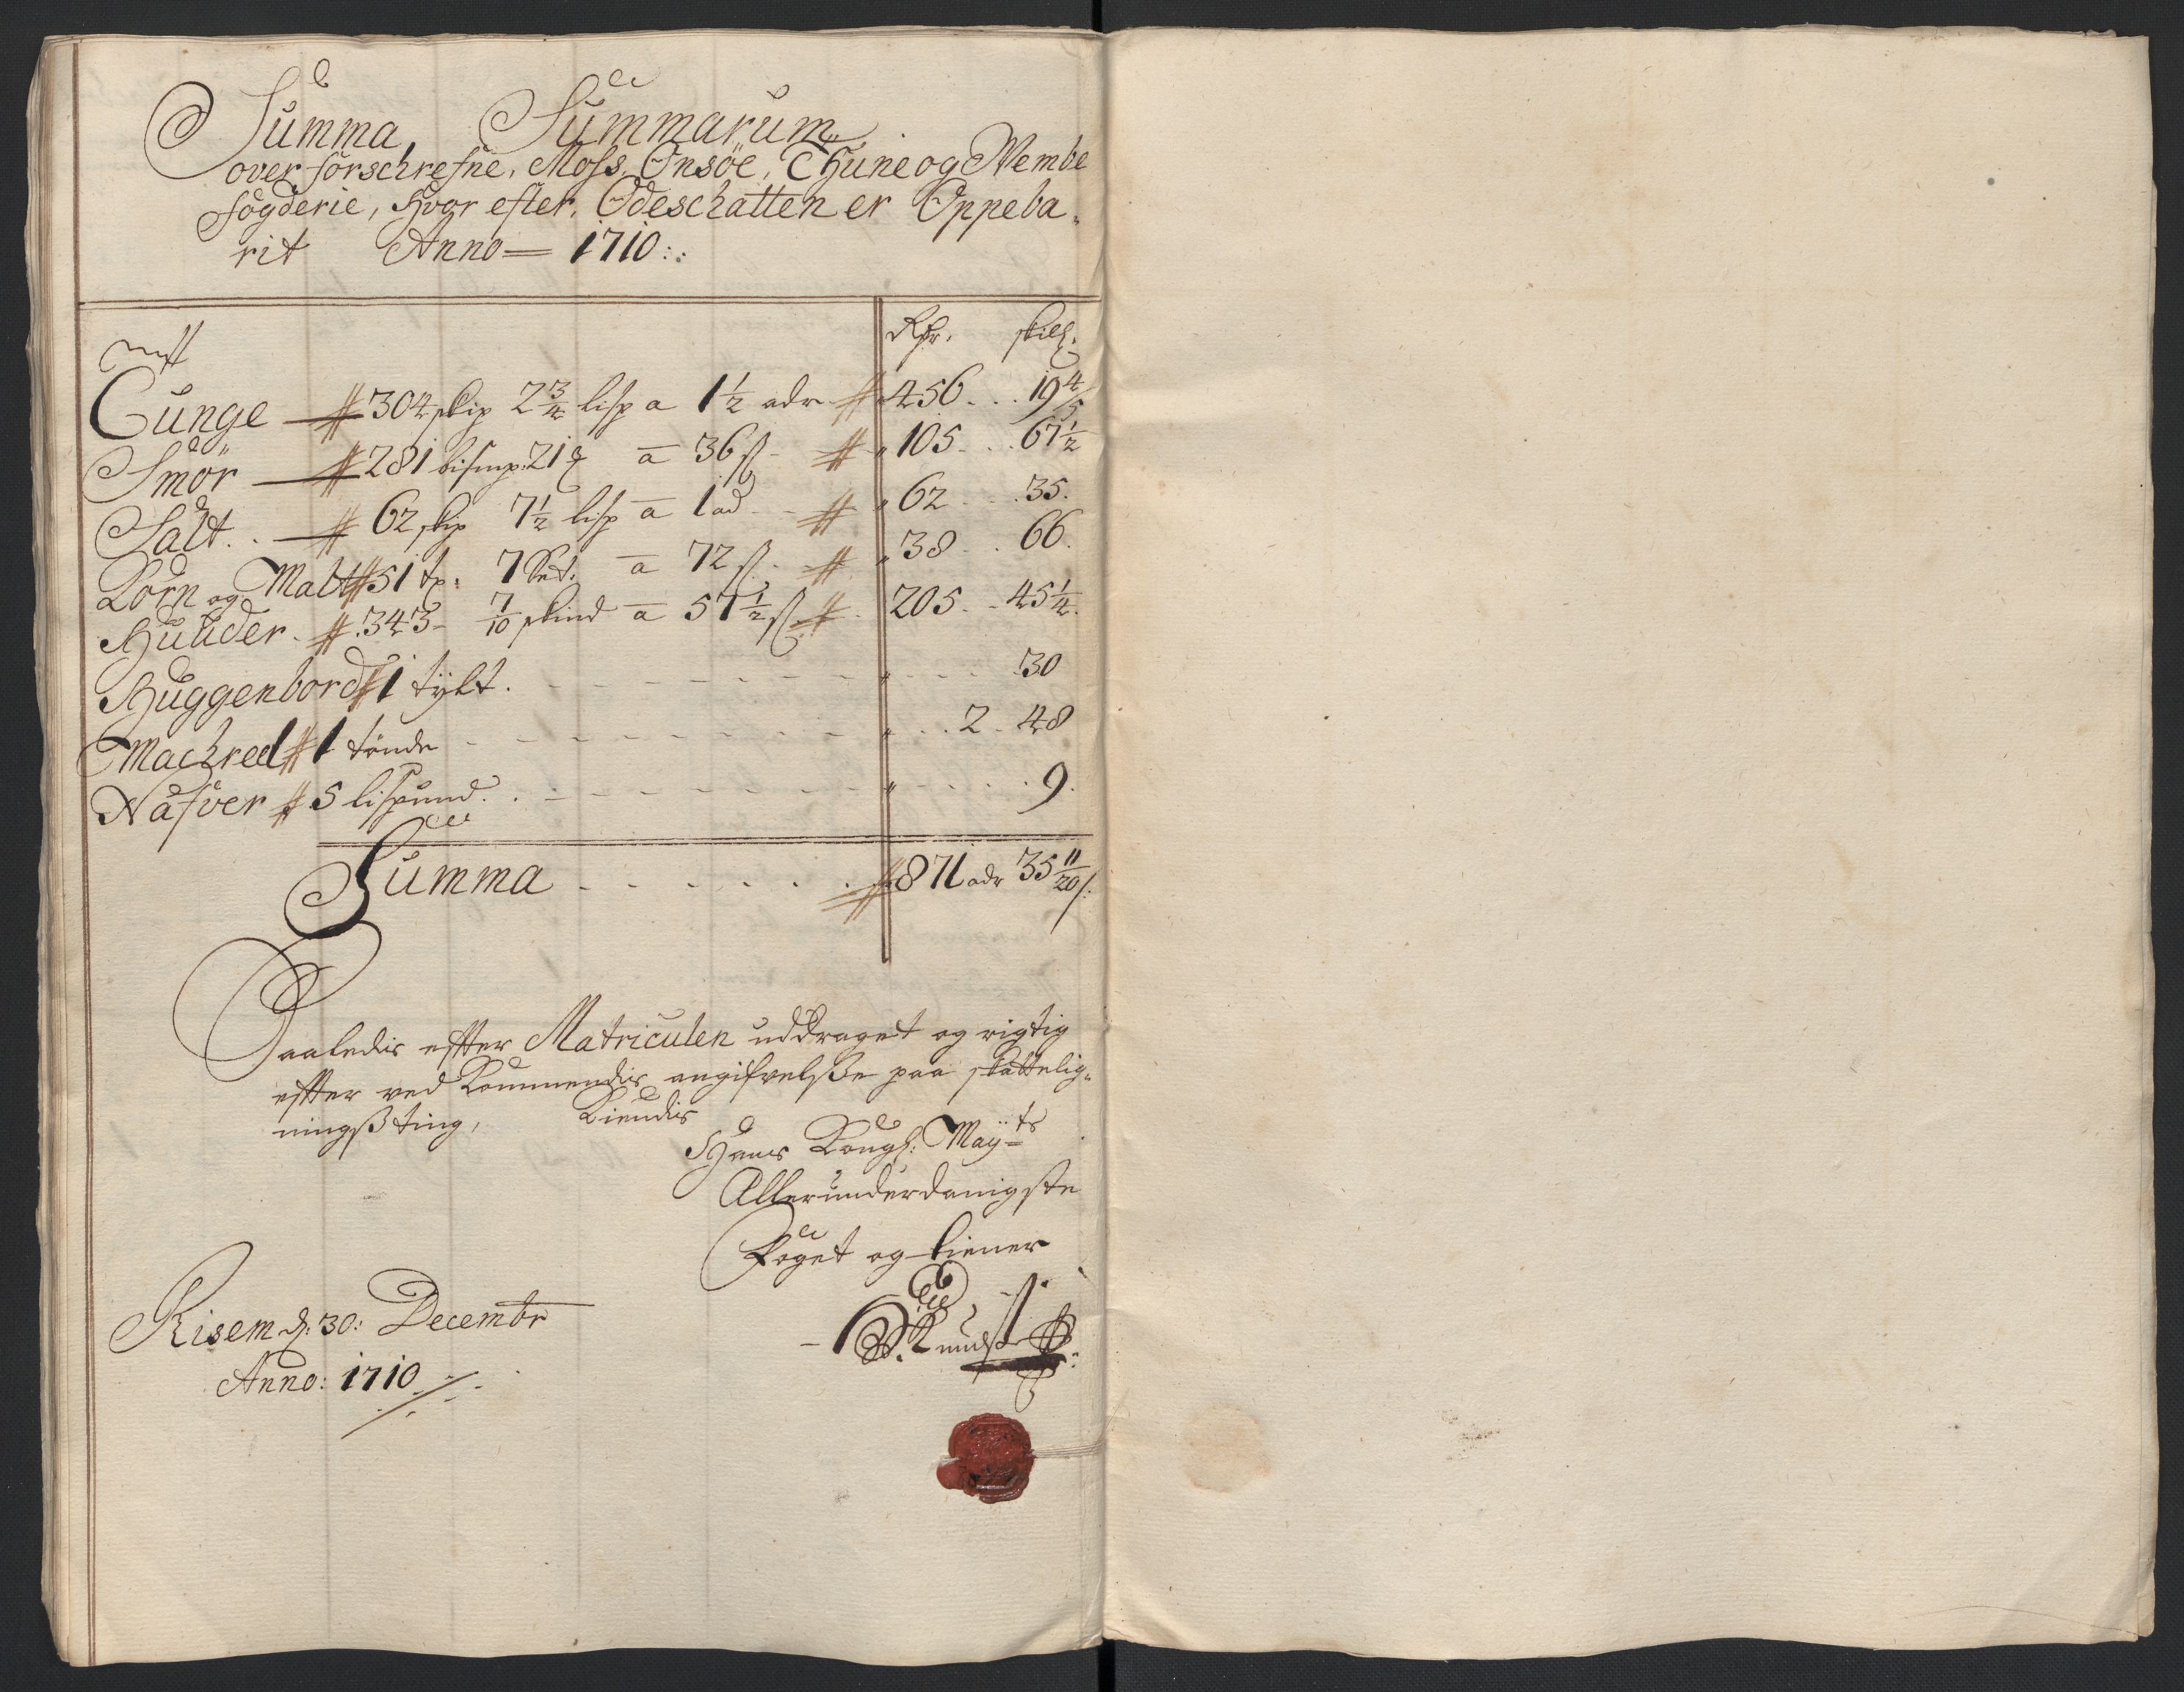 Summa Summarum
over forschrefne, Moss, Onsöe, Thune og Wembe
fögderie, Hvor efter, Ödeschatten er Oppeba,
rit Anno 1710:
Rdr. skill.
Tunge 304 skip 2 3/4 lisp a 1 1/2 odr 456 19 4/5
Smör 281 bismp: 21 a 36 s 105 67 1/2
Salt 62 skp 7 1/2 lisp a 1 od 62 35.
Korn og Malt 51 tr: 7 Set: a 72 s 38 66.
Huuder 343 7/10 skind a 57 1/2 s 205 45 1/4.
Huggenbord 1 tylt. 30
Machreel 1 tønde 2 48
Näfver 5 lispund 9.
Summa 871 odr 35 11/20 s:
Saaledis effter Matriculen uddraget og rigtig
effter ved Kommendis angifvelsse paa skattelig,
ningssting, Kiendis
Hans Kongl: May:ts
Allerunderdanigste
Foget og tiener
Knudss
Risem d: 30: Decembr
Anno: 1710